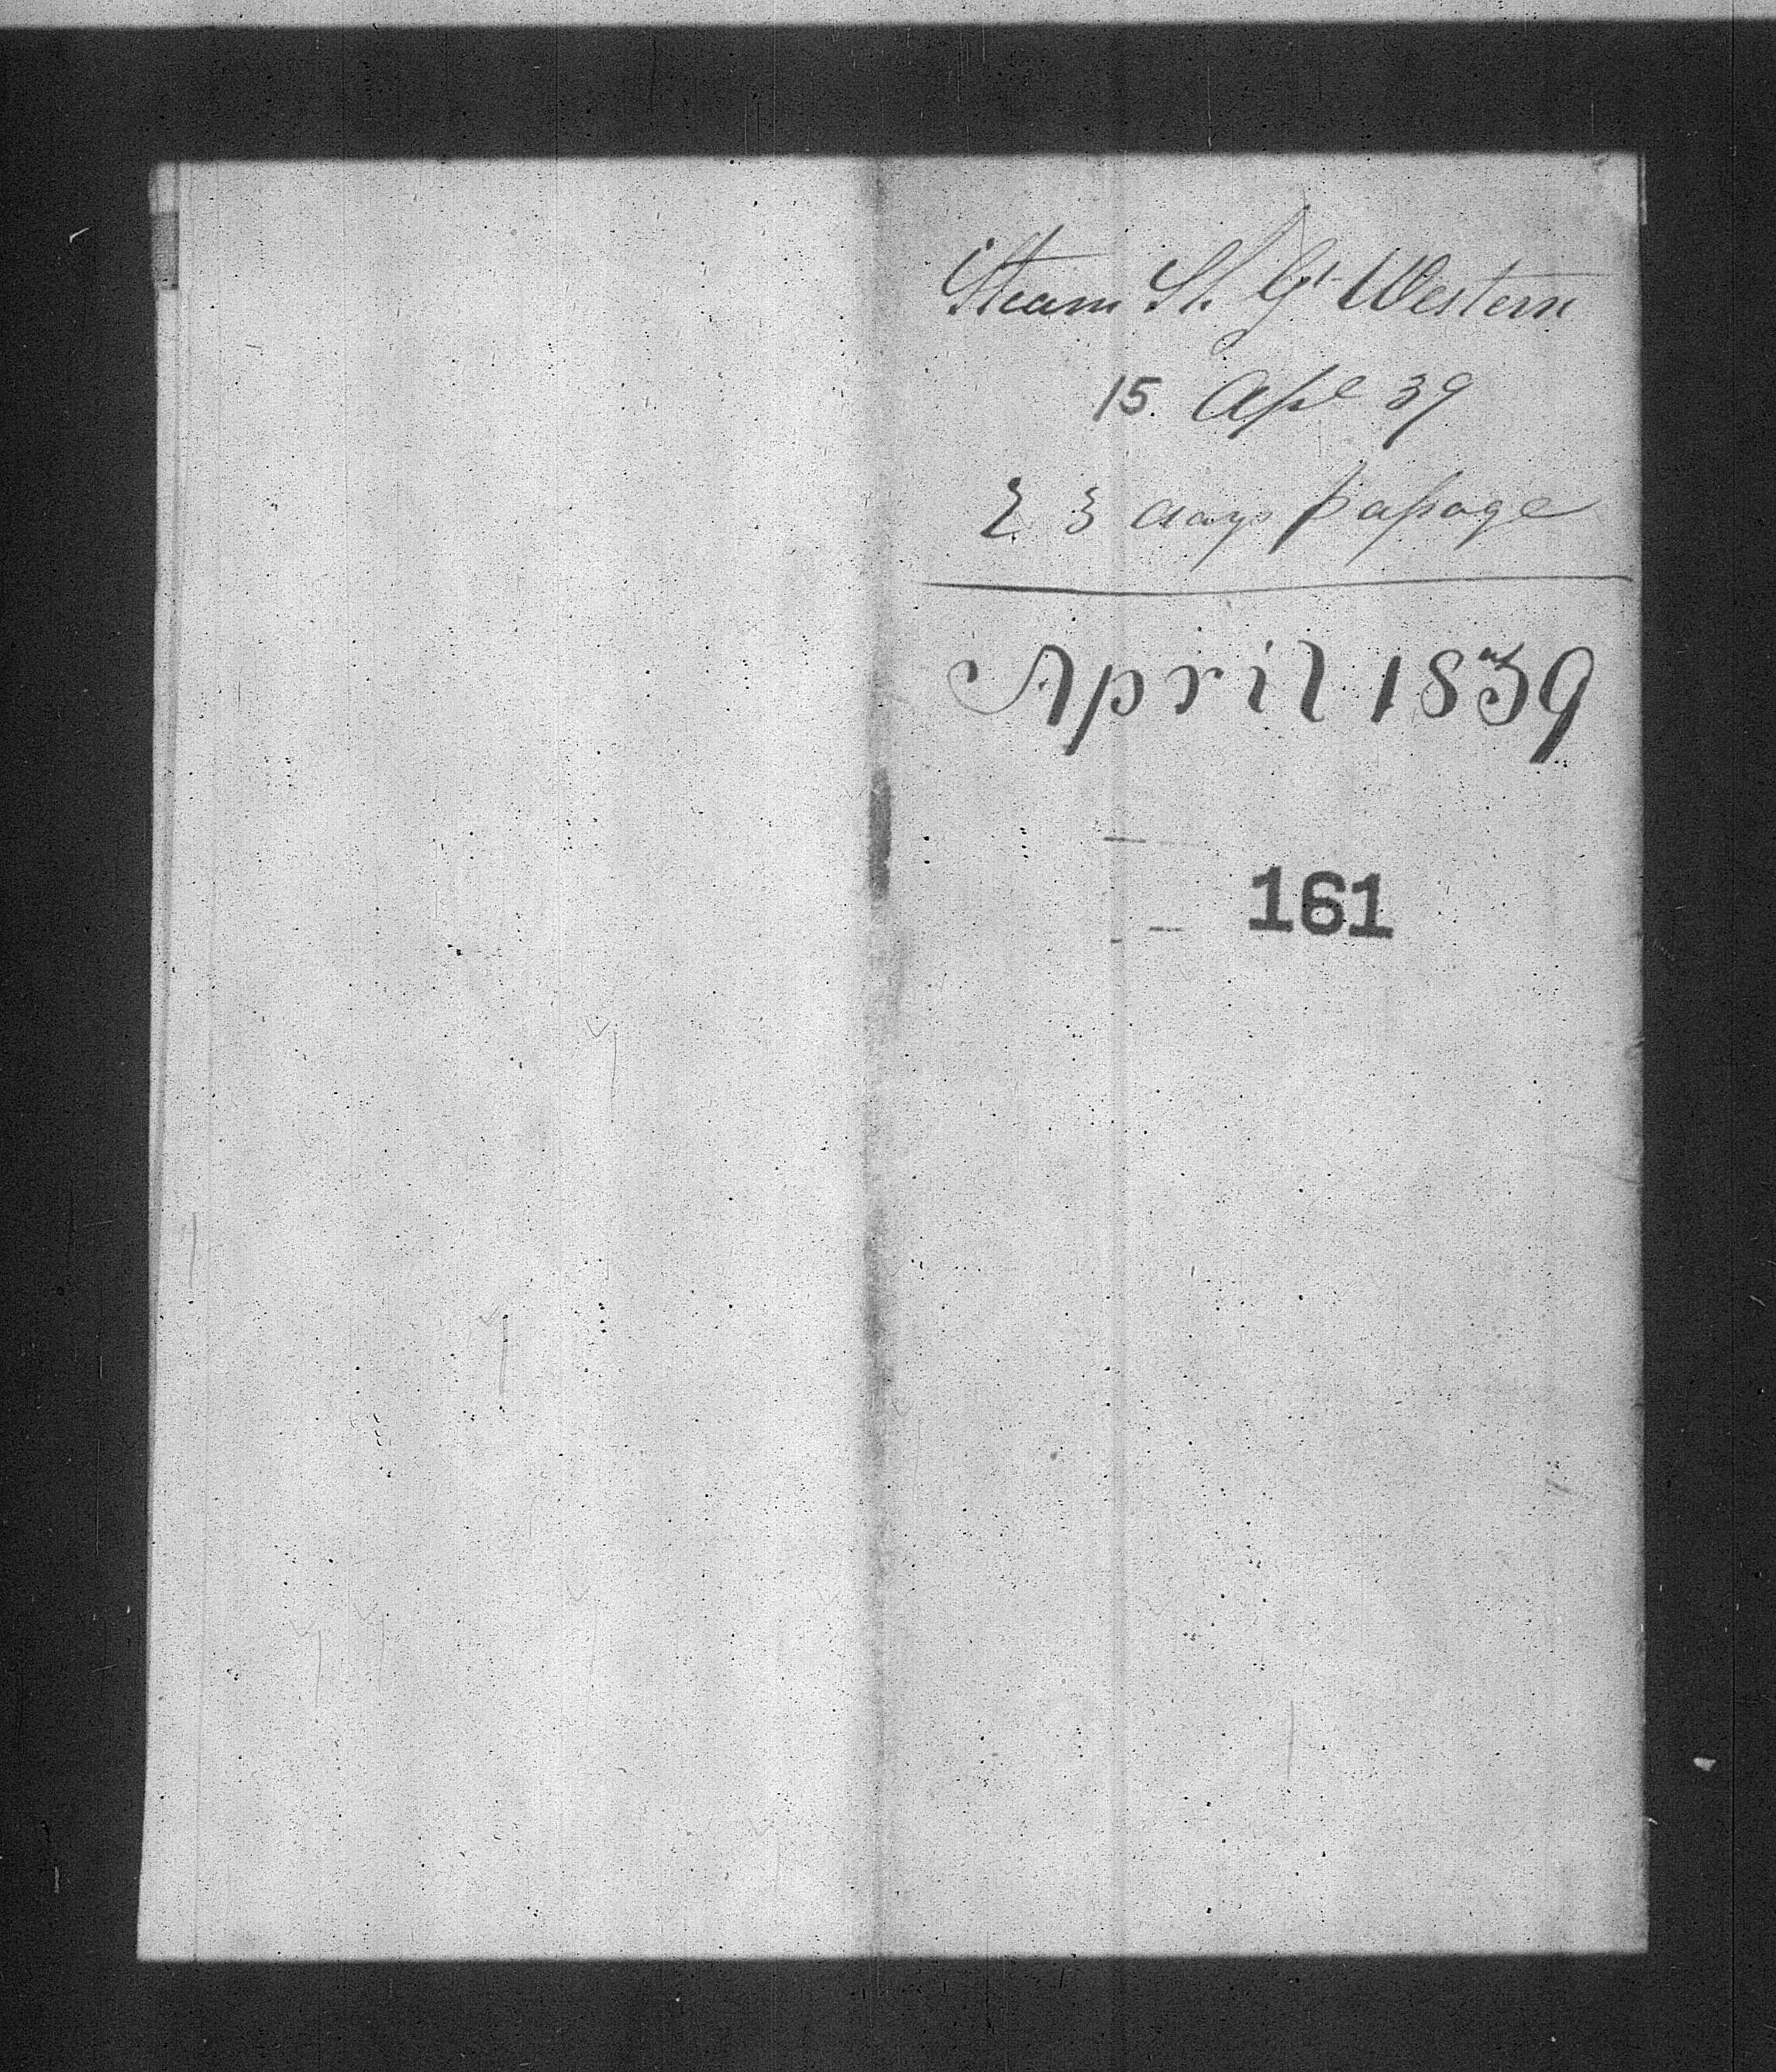 Steam Sh. Gt Western
15. Apl 39
23 days passage
April 1839
161